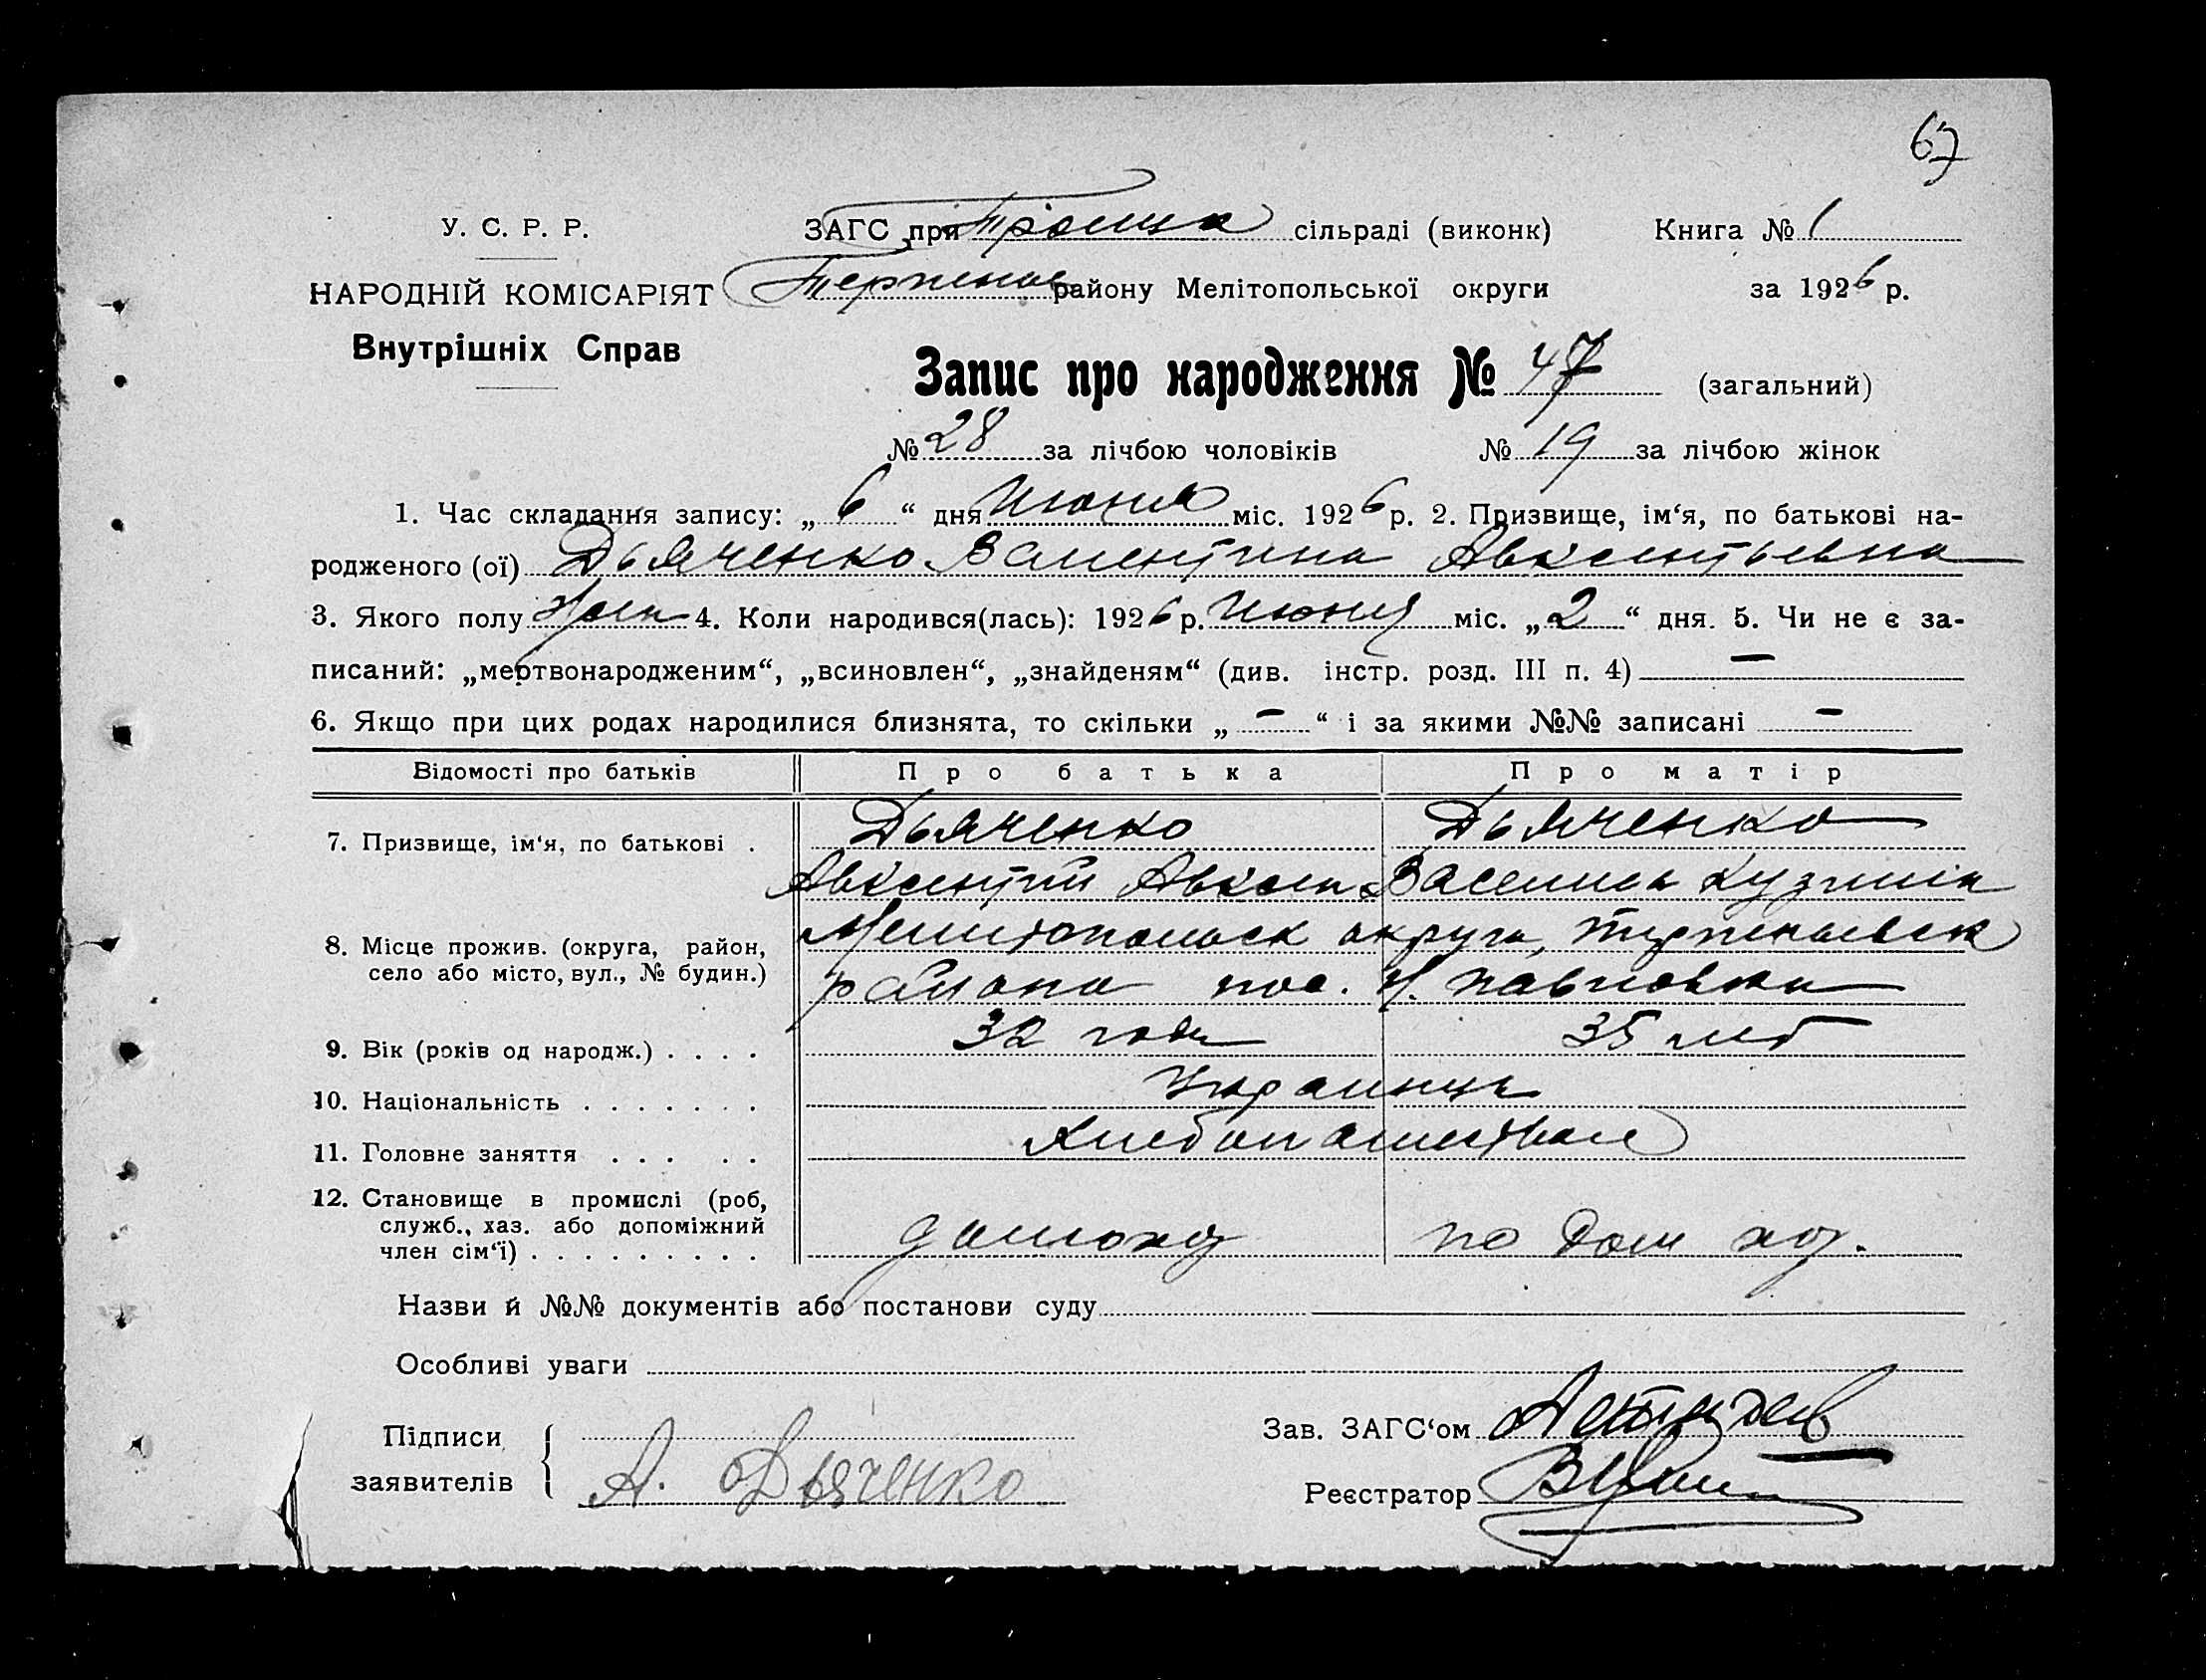 67
У. С. Р. Р.
ЗАГС при Троицк сільраді (виконк)
Книга № 1
НАРОДНІЙ КОМІСАРІЯТ
Терпение району Мелітопольської округи
за 1926 р.
Внутрішніх Справ
Запис про народження № 47 (загальний)
№ 28 за лічбою чоловіків № 19 за лічбою жінок
1. Час складання запису: „ 6 “ дня Июня міс. 1926 р. 2. Призвище, ім‘я, по батькові на-
родженого (ої) Дьяченко Валентина Авксентьевна
3. Якого полу жен 4. Коли народився(лась): 1926 р. Июня міс. „ 2 “ дня. 5. Чи не є за-
писаний: „мертвонародженим“, „всиновлен“, „знайденям“ (див. інстр. розд. III п. 4) —
6. Якщо при цих родах народилися близнята, то скільки „ – “ і за якими №№ записані –
Відомості про батьків Про батька Про матір
7. Призвище, ім‘я, по батькові . Дьяченко Дьяченко
Авксентий Авксен Василиса Кузьмін
8. Місце прожив. (округа, район, Мелитопольск округа,
село або місто, вул., № будин.) района пос. Н. Павловка
9. Вік (років од народж.) . . . . 32 года 35 лет
10. Національність . . . . . . . Украинцы
11. Головне заняття . . . . . Хлебопашество
12. Становище в промислі (роб,
служб., хаз. або допоміжний
член сім‘ї) . . . . . . . . . домохоз по дом хоз.
Назви й №№ документів або постанови суду
Особливі уваги
Підписи
заявителів
А. Дьяченко
Зав. ЗАГС‘ом
Реєстратор